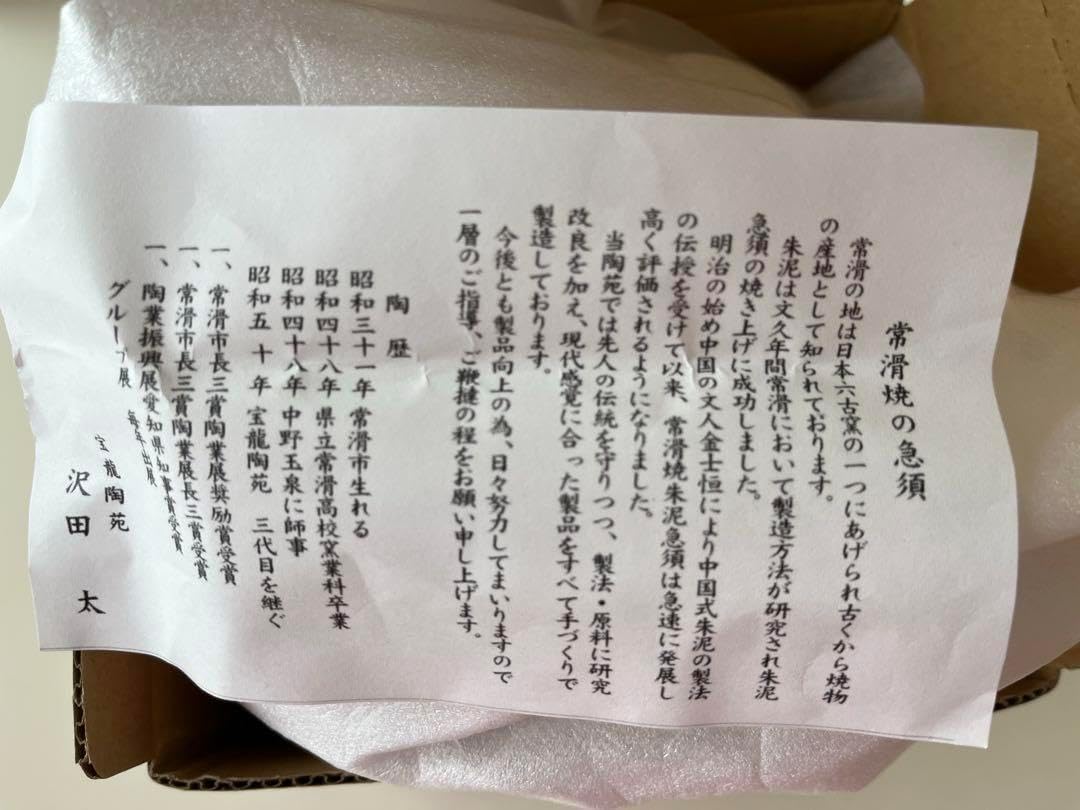 常滑焼の急須
常滑の地は日本六古窯の一つにあげられ古くから焼物
の産地として知られております。
朱泥は文久年間常滑において製造方法が研究され朱泥
急須の焼き上げに成功しました。
明治の始め中国の文人金士恒により中国式朱泥の製法
の伝授を受けて以来、常滑焼朱泥急須は急速に発展し
高く評価されるようになりました。
当陶苑では先人の伝統を守りつつ、製法・原料に研究
改良を加え、現代感覚に合った製品をすべて手づくりで
製造しております。
今後とも製品向上の為、日々努力してまいりますので
一層のご指導、ご鞭撻の程をお願い申し上げます。
陶歴
昭和三十一年 常滑市生れる
昭和四十八年 県立常滑高校窯業科卒業
昭和四十八年 中野玉泉に師事
昭和五十年 宝龍陶苑 三代目を継ぐ
一、常滑市長三賞陶業展奨励賞受賞
一、常滑市長三賞陶業展長三賞受賞
一、陶業振興展愛知県知事賞受賞
グループ展 毎年出展
宝龍陶苑
沢田 太